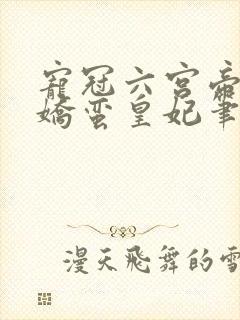 寵冠六宮帝
嬌蛮皇妃筆
漫天飛舞的雪